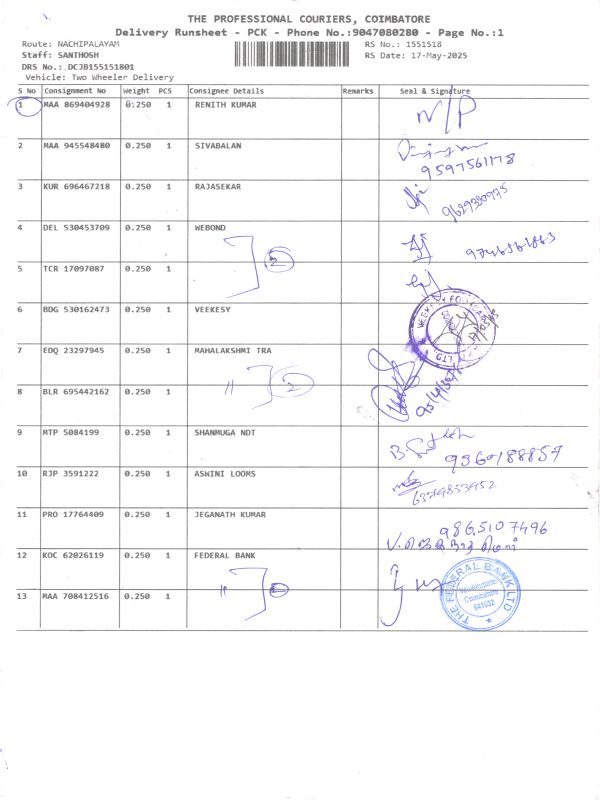 THE PROFESSIONAL COURIERS, COIMBATORE
Delivery Runsheet - PCK - Phone No.:9047080280 - Page No.:1
Route: NACHIPALAYAM RS No.: 1551518
Staff: SANTHOSH RS Date: 17-May-2025
DRS No.:.DCJB155151801
Vehicle: Two Wheeler Delivery
S No Consignment No Weight PCS Consignee Details Remarks Seal & Signature
1 MAA 869404928 0.250 1 RENITH KUMAR N/P
2 MAA 945548480 0.250 1 SIVABALAN
9597561178
3 KUR 696467218 0.250 1 RAJASEKAR 9629380975
4 DEL 530453709 0.250 1 WEBOND
2
5 TCR 17097087 0.250 1
6 BDG 530162473 0.250 1 VEEKESY
7 EDQ 23297945 0.250 1 MAHALAKSHMI TRA
" 2
8 BLR 695442162 0.250 1
9 MTP 5084199 0.250 1 SHANMUGA NDT
9360188857
10 RJP 3591222 0.250 1 ASWINI LOOMS
6379853952
11 PRO 17764409 0.250 1 JEGANATH KUMAR 986.5107496
12 KOC 62026119 0.250 1 FEDERAL BANK
" 2
13 MAA 708412516 0.250 1
THE FEDERAL BANK LTD
Coimbatore
641032